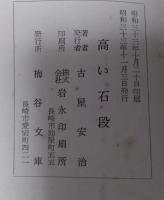 昭和三十三年十月二十日印刷
昭和三十三年十一月三日発行
高い石段
著者
発行者
古屋安治
印刷所
株式会社
岩永印刷所
長崎市
町五五
発行所
梅谷文庫
長崎市愛宕町四二一